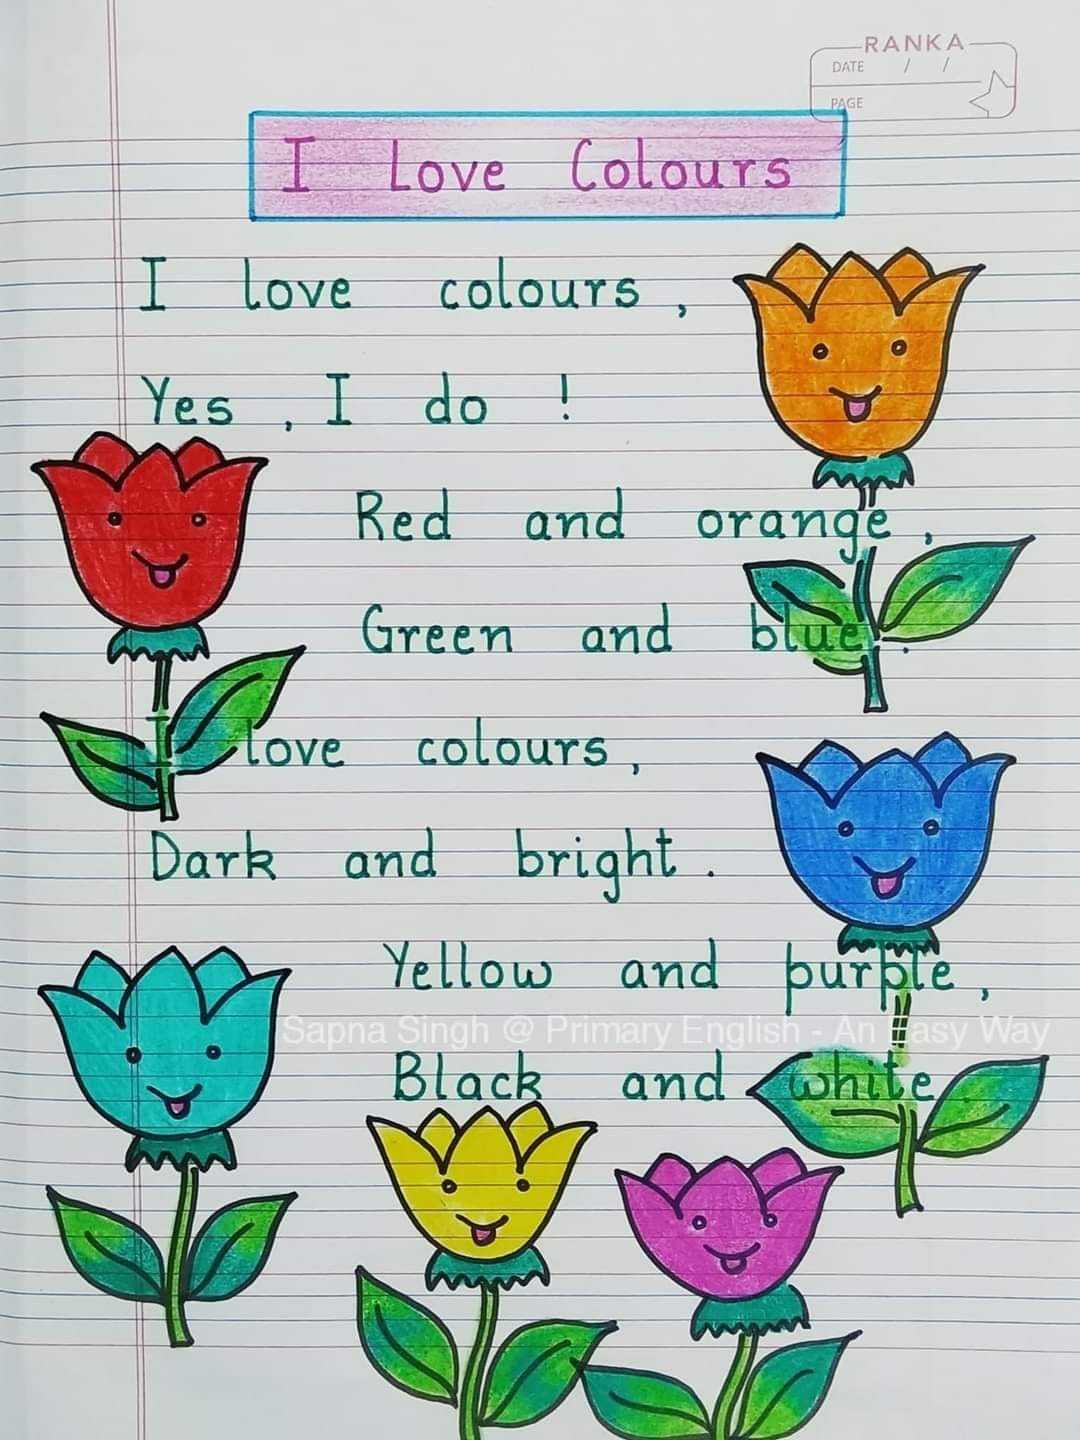 RANKA
DATE / /
PAGE
I Love Colours
I love colours,
Yes, I do !
Red and orange,
Green and blue.
I love colours,
Dark and bright.
Yellow and purple,
Sapna Singh @ Primary English - An Easy Way
Black and white.